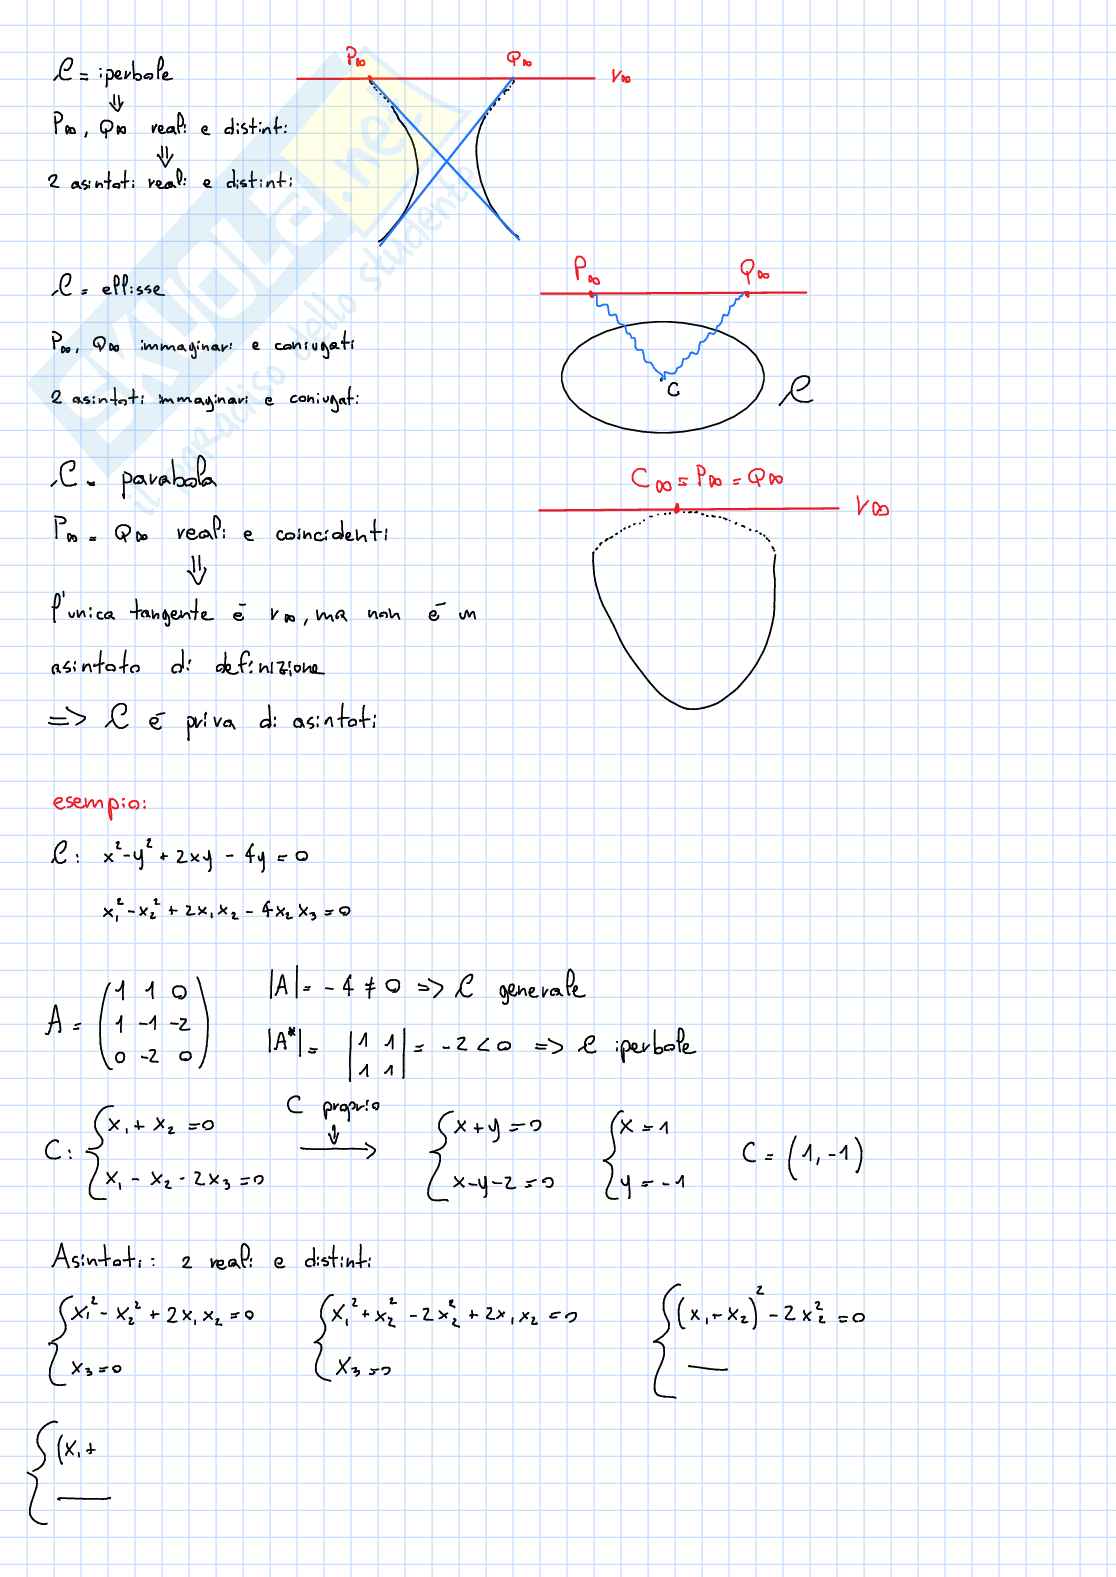 C = iperbole
⇓
P∞, Q∞ reali e distinti
⇓
2 asintoti reali e distinti
P∞ Q∞ r∞
C = ellisse
P∞, Q∞ immaginari e coniugati
2 asintoti immaginari e coniugati
P∞ Q∞
C
C
C = parabola
P∞ = Q∞ reali e coincidenti
⇓
l'unica tangente é r∞, ma non é un
asintoto di definizione
=> C é priva di asintoti
C∞ = P∞ = Q∞
r∞
esempio:
C: x² - y² + 2xy - 4y = 0
x₁² - x₂² + 2x₁x₂ - 4x₂x₃ = 0
A = (1 1 0
1 -1 -2
0 -2 0)
|A| = -4 ≠ 0 => C generale
|A*| = |1 1
1 1| = -2 < 0 => C iperbole
C: { x₁ + x₂ = 0
x₁ - x₂ - 2x₃ = 0
C proprio
⇓
→
{ x + y = 0
x - y - 2 = 0
{ x = 1
y = -1
C = (1, -1)
Asintoti: 2 reali e distinti
{ x₁² - x₂² + 2x₁x₂ = 0
x₃ = 0
{ x₁² + x₂² - 2x₂² + 2x₁x₂ = 0
x₃ = 0
{ (x₁ + x₂)² - 2x₂² = 0
—
{ (x₁ +
—
SKUOLA.net
il paradiso dello studente